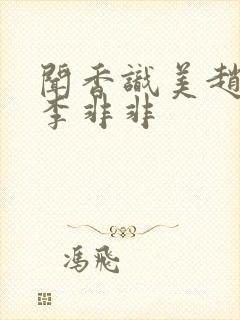 聞香識美趙
李非非
馮飛